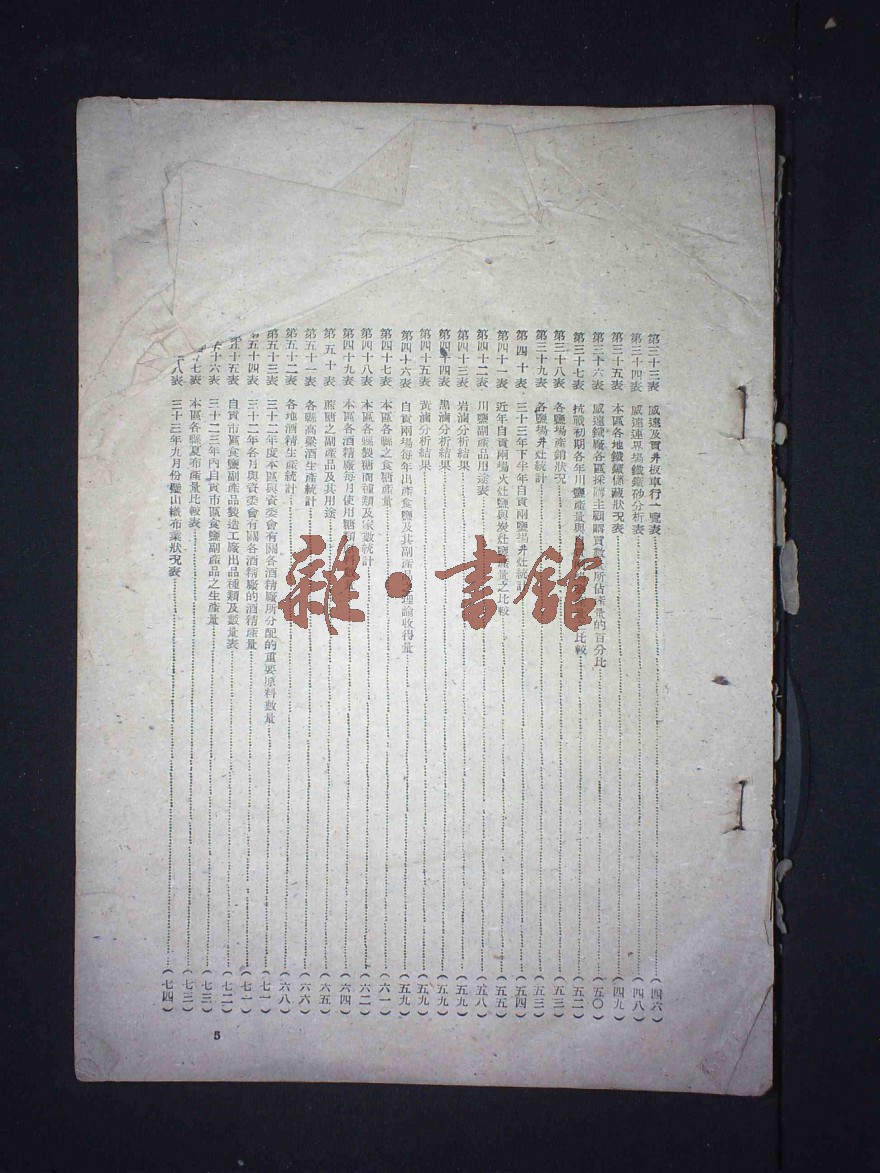 第三十三表 威遠及貢井板車行一覽表(四六)
第三十四表 威遠連界場鐵鑛砂分析表(四八)
第三十五表 本區各地鐵鑛儲藏狀況表(四九)
第三十六表 威遠鐵廠各區採礦主顧購買數 所佔產量的百分比(五〇)
第三十七表 抗戰初期各年川鹽產量與自 比較(五二)
第三十八表 各鹽場產銷狀況(五三)
第三十九表 各鹽場井灶統計(五三)
第四十表 三十三年下半年自貢兩鹽場井灶統計(五四)
第四十一表 近年自貢兩場火灶鹽與炭灶鹽產量之比較(五五)
第四十二表 川鹽副產品用途表(五八)
第四十三表 岩滷分析結果(五九)
第四十四表 黑滷分析結果(五九)
第四十五表 黃滷分析結果(五九)
第四十六表 自貢兩場每年出產食鹽及其副產品之理論收得量(五九)
第四十七表 本區各縣之食糖產量(六一)
第四十八表 本區各縣製糖間種類及家數統計(六二)
第四十九表 本區各酒精廠每月使用糖(六四)
第五十表 蔗糖之副產品及其用途(六五)
第五十一表 各縣高粱酒生產統計(六六)
第五十二表 各地酒精生產統計(六八)
第五十三表 三十二年度本區與資委會有關各酒精廠所分配的重要原料數量(七一)
第五十四表 三十二年各月與資委會有關各酒精廠的酒精產量(七一)
第五十五表 自貢市區食鹽副產品製造工廠出品種類及數量表(七二)
十六表 三十二三年內自貢市區食鹽副產品之生產量(七三)
七表 本區各縣夏布產量比較表(七三)
八表 三十三年九月份璧山織布業狀況表(七四)
5
雜·書館